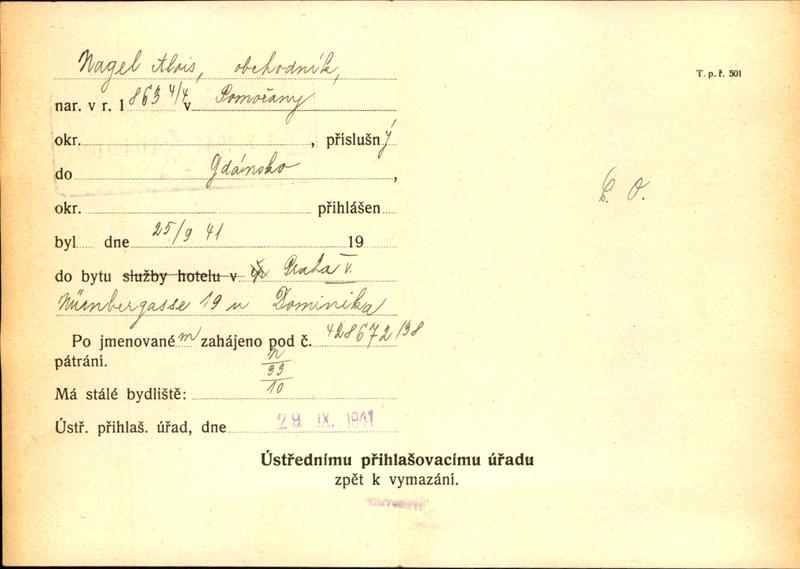 Nagel Alois, obchodník,
T. p. ř. 501
nar. v r. 1863 4/4 v Pomořany
okr. , příslušný
do Gdánsko ,
okr. přihlášen
byl dne 25/9 41 19
do bytu služby hotelu v čp Praha V.
Nürnbergasse 19 u Dominika
Po jmenovaném zahájeno pod č. 428672/38
pátrání.
n
33
10
Má stálé bydliště:
Ústř. přihlaš. úřad, dne 29. IX. 1941
Ústřednímu přihlašovacímu úřadu
zpět k vymazání.